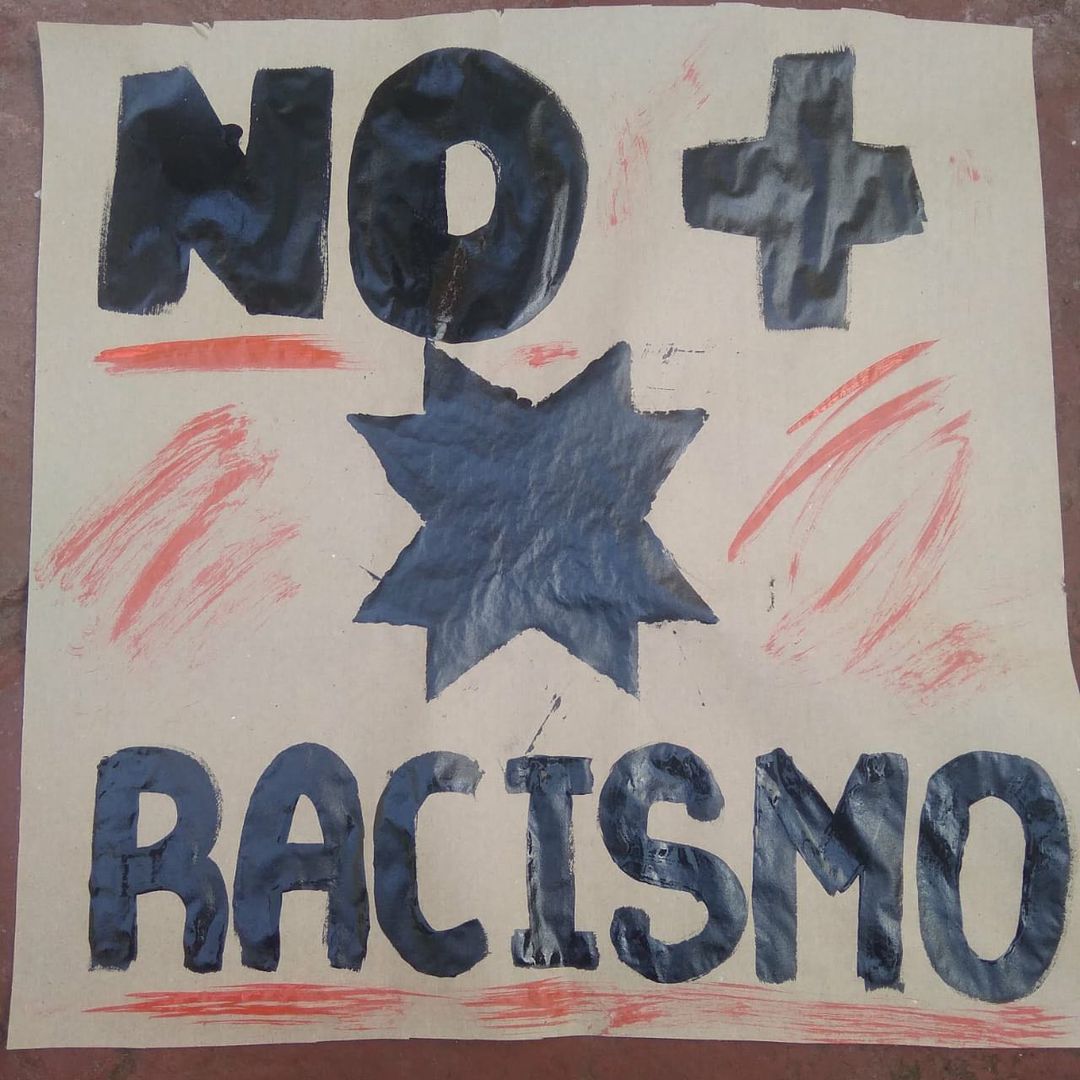 NO +
RACISMO